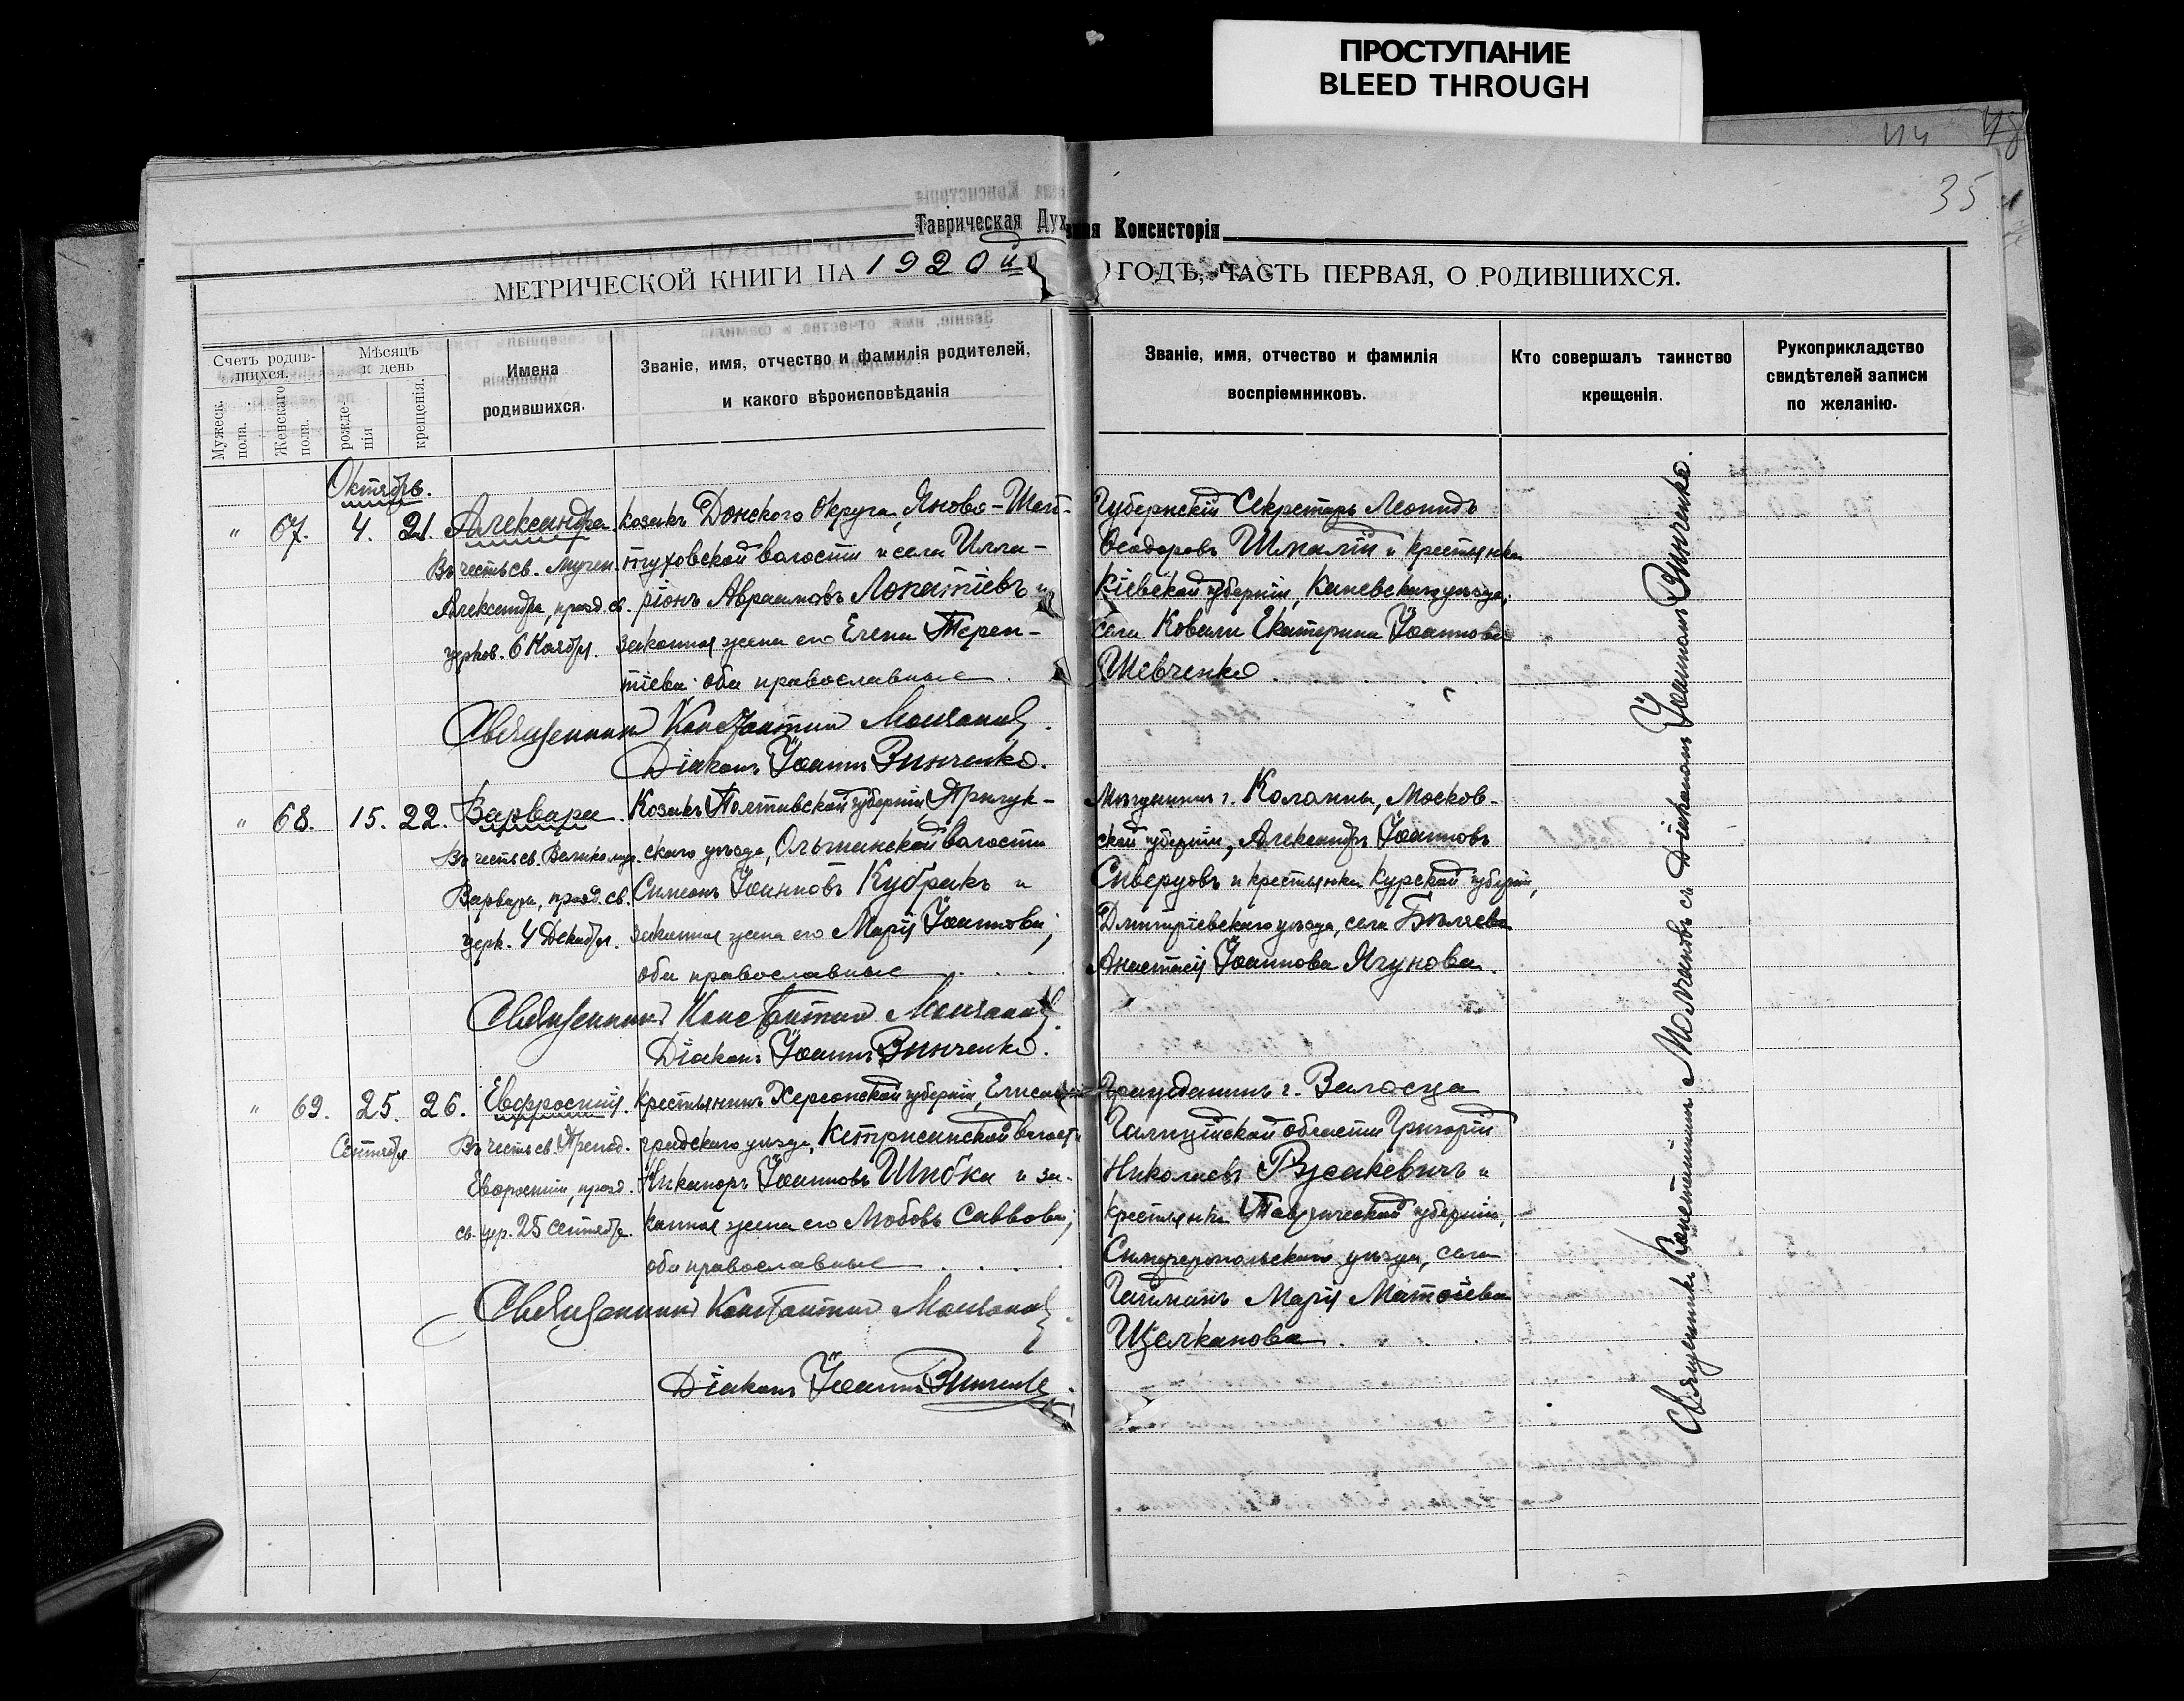 ПРОСТУПАНИЕ
BLEED THROUGH
35
Таврическая Духовная Консисторія
МЕТРИЧЕСКОЙ КНИГИ НА 1920 й ГОДЪ, ЧАСТЬ ПЕРВАЯ, О РОДИВШИХСЯ.
Счетъ родившихся.
Мужеск. пола.
Женскаго пола.
Мѣсяцъ и день
рожденія
крещенія.
Имена
родившихся.
Званіе, имя, отчество и фамилія родителей,
и какого вѣроисповѣданія
Званіе, имя, отчество и фамилія
воспріемниковъ.
Кто совершалъ таинство
крещенія.
Рукоприкладство
свидѣтелей записи
по желанію.
Октябрь.
" 67. 4. 21. Александра.
Въ честь св. Мучен.
Александры, празд. св.
церков. 6 Ноября.
Козакъ Донского Округа,
волости и села Илла-
ріонъ Авраамовъ Лопатіевъ и
законная жена его Елена Терен-
тіева; оба православные
Губернскій Секретарь Леонидъ
Ѳеодоровъ и крестьянка
Кіевской губерніи, Каневскаго уѣзда,
села Ковали Екатерина Іоаннова
Шевченко
Священникъ Константинъ Молчановъ.
Діаконъ Іоаннъ Винченко.
" 68. 15. 22. Варвара.
Въ честь св. Великомуч.
Варвары, празд. св.
церк. 4 Декабря.
Козакъ Полтавской губерніи, Прилук-
скаго уѣзда, Ольшанской волости
Симеонъ Іоанновъ Кубракъ и
законная жена его Марія Іоаннова;
оба православные
Мѣщанинъ г. Коломны, Москов-
ской губерніи, Александръ Іоанновъ
Сиверцовъ и крестьянка Курской губерніи,
Дмитріевскаго уѣзда, села Бѣляева
Анастасія Іоаннова Ягунова.
Священникъ Константинъ Молчановъ.
Діаконъ Іоаннъ Винченко.
" 69. 25. 26. Евфросинія.
Сентября
Въ честь св. Препод.
Евфросиніи, празд.
св. цер. 25 Сентября.
Крестьянинъ Херсонской губерніи, Елисавет-
градскаго уѣзда, волости
Никаноръ Іоанновъ Шибка и за-
конная жена его Любовь Саввова;
оба православные
Гражданинъ г. Залосца
Галиційской области Григорій
Николаевъ Русакевичъ и
крестьянка Таврической губерніи,
Симферопольскаго уѣзда, села
Марія Матѳіева
Щелканова
Священникъ Константинъ Молчановъ.
Діаконъ Іоаннъ Винченко.
Священникъ Константинъ Молчановъ съ Діакономъ Іоанномъ Винченко.